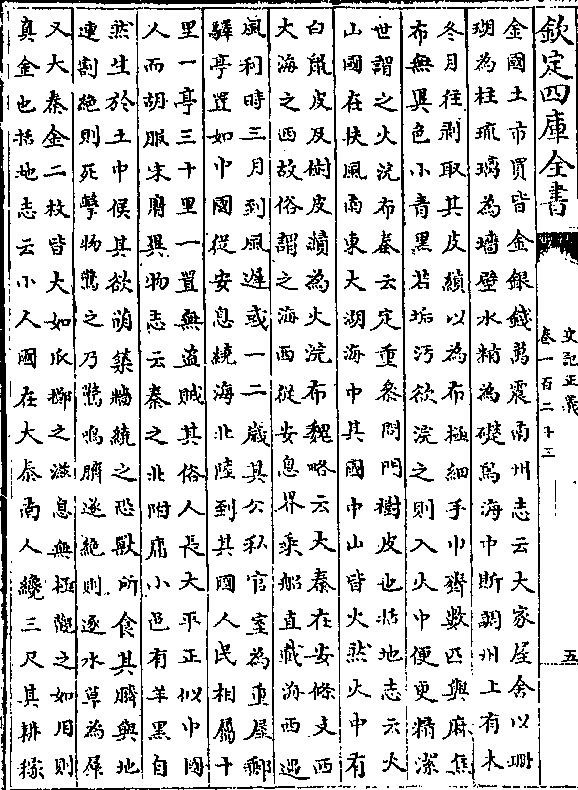 欽定四庫全書
史記正義
卷一百二十三
五
金國土市買皆金銀錢萬震南州志云大家屋舍以珊
瑚為柱琉璃為墻壁水精為礎舄海中斯調州上有木
冬月往剥取其皮績以為布極細手巾齊數匹與麻焦
布無異色小青黑若垢污欲浣之則入火中便更精潔
世謂之火浣布秦云定重參問門樹皮也括地志云火
山國在扶風南東大湖海中其國中山皆火然火中有
白鼠皮及樹皮績為火浣布魏略云大秦在安條支西
大海之西故俗謂之海西從安息界乘船直載海西遇
風利時三月到風遲或一二歲其公私官室為重屋郵
驛亭置如中國從安息繞海北陸到其國人民相屬十
里一亭三十里一置無盗賊其俗人長大平正似中國
人而胡服宋膺異物志云秦之北附庸小邑有羊黑自
然生於土中候其欲萌築墻繞之恐獸所食其臍與地
連割絶則死擊物驚之乃驚鳴臍遂絶則逐水草為羣
又大秦金二枚皆大如瓜擲之滋息無極觀之如用則
真金也括地志云小人國在大秦南人纔三尺其耕稼